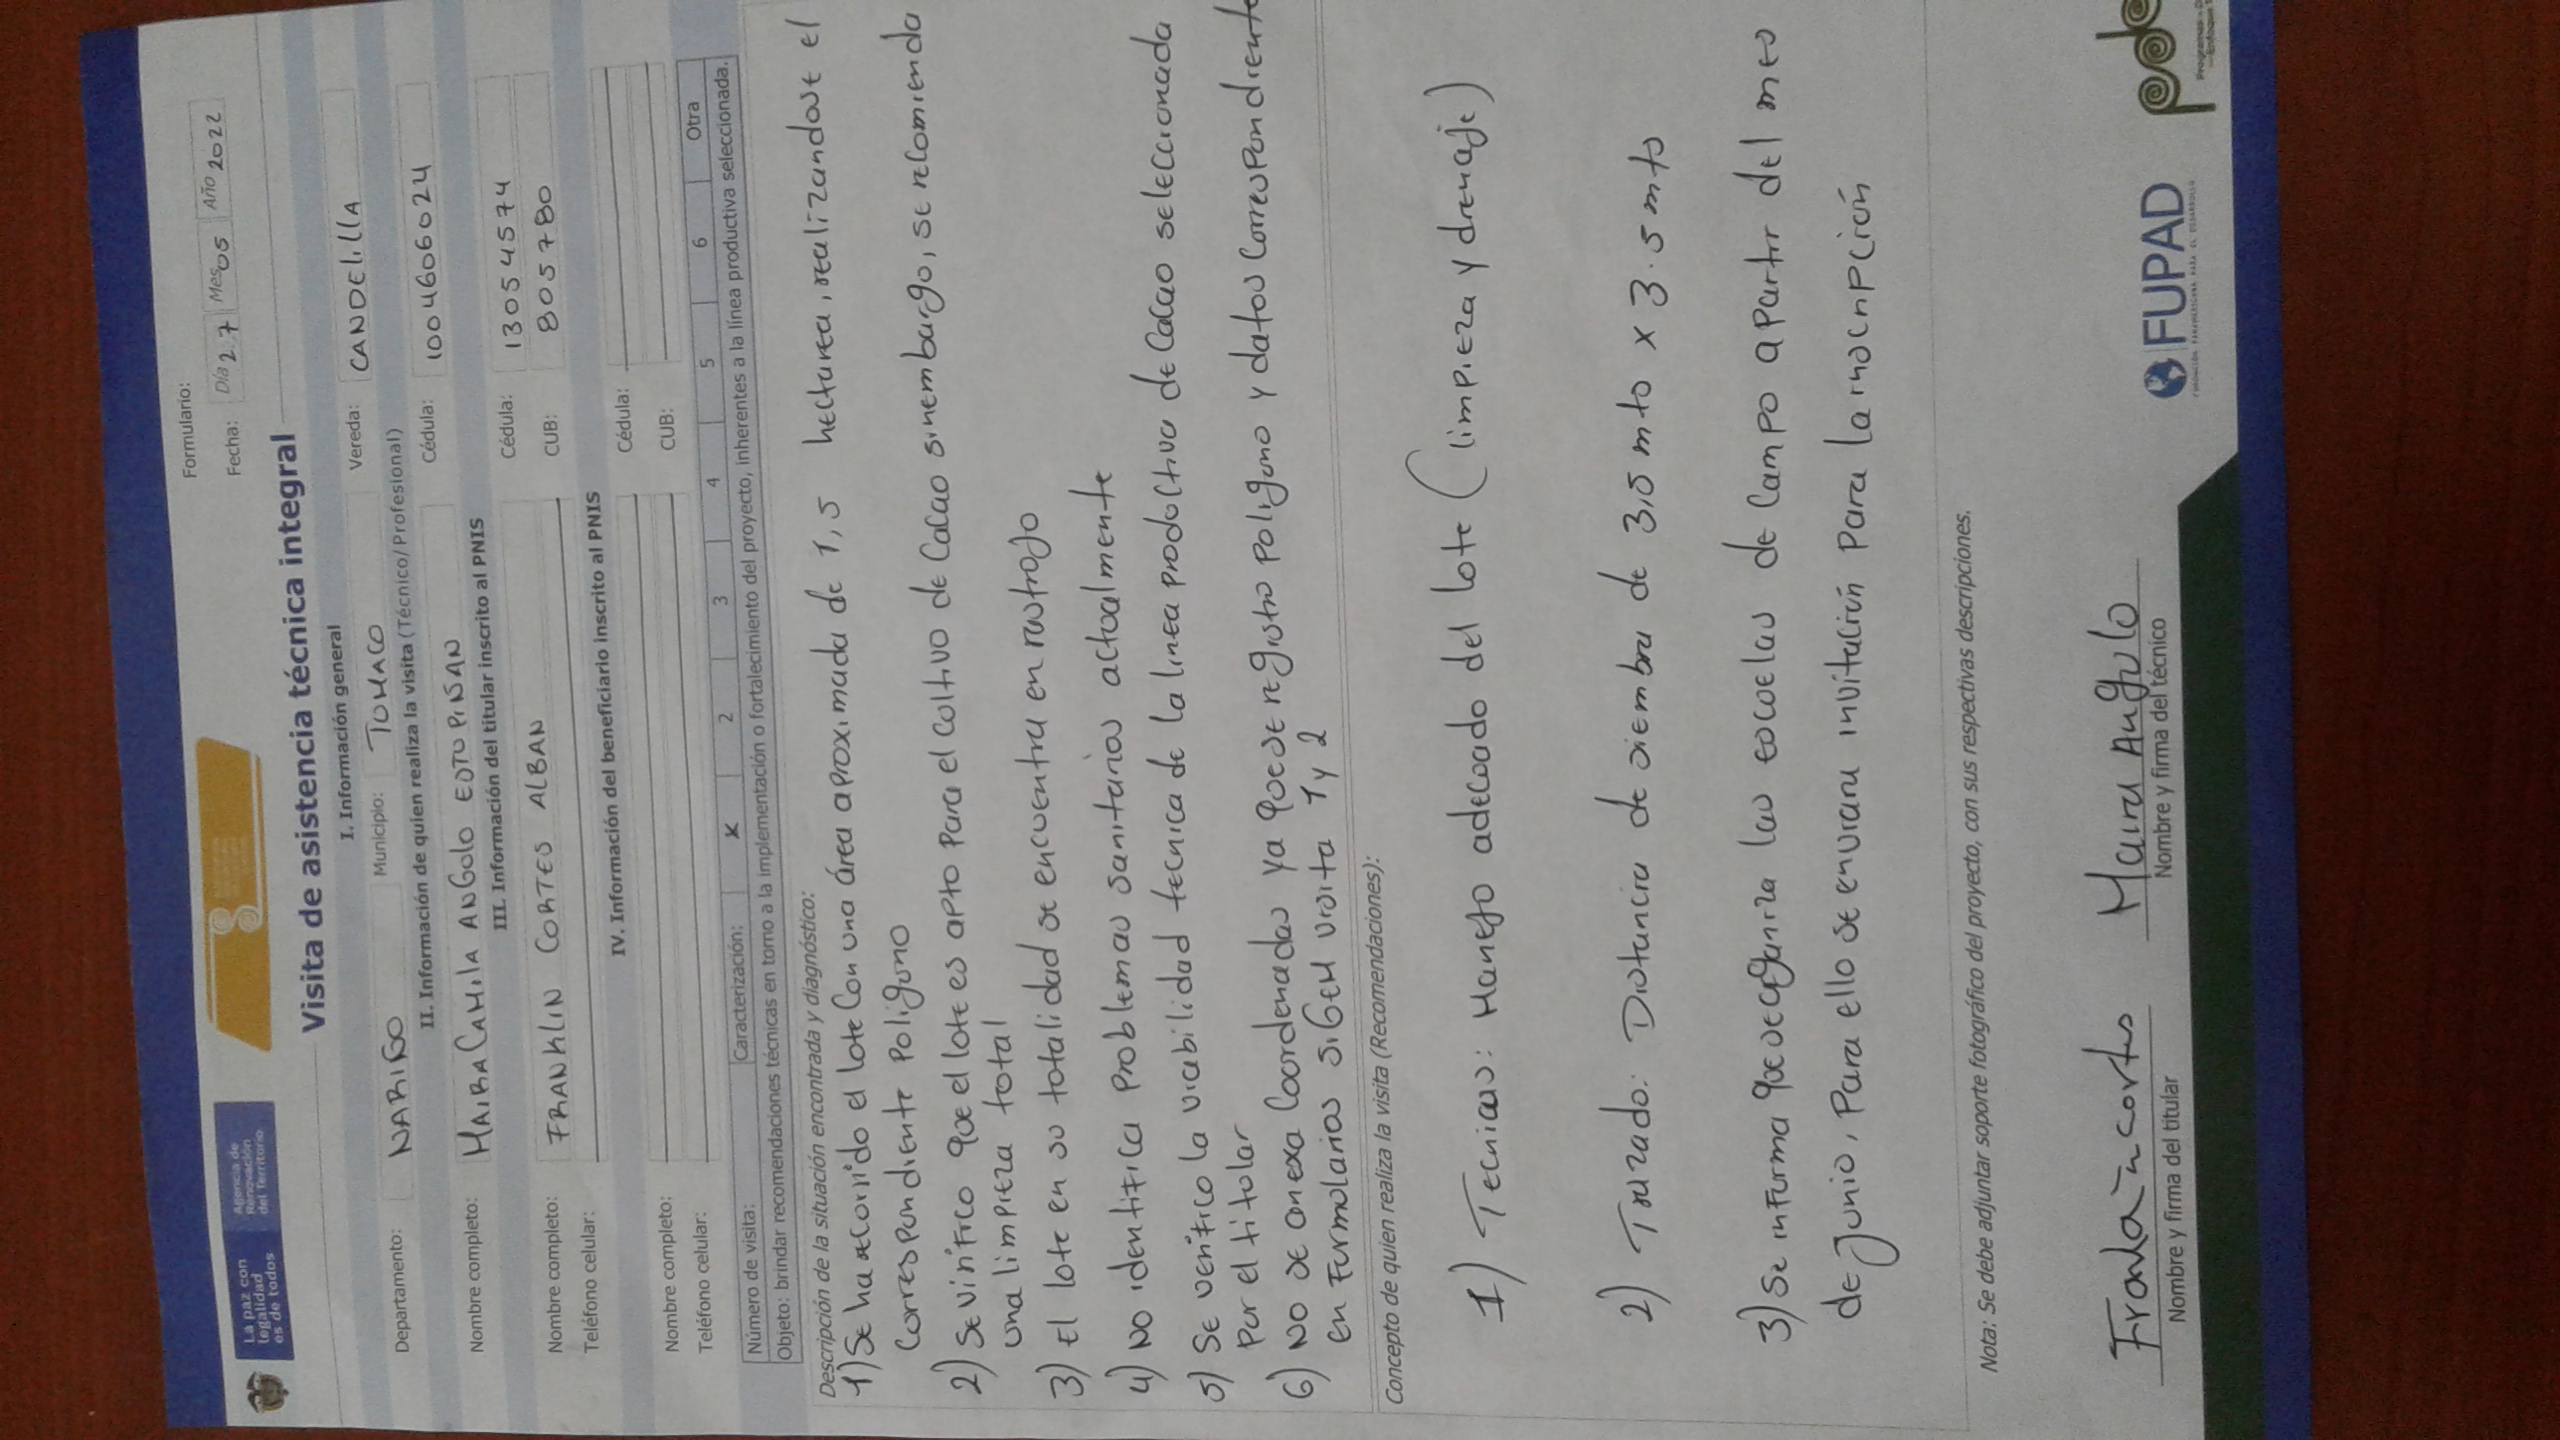 La paz con
legalidad
es de todos
Agencia de
Renovación
del Territorio
Formulario:
Fecha: Día 27 Mes 05 Año 2022
Visita de asistencia técnica integral
I. Información general
Departamento: NARIÑO Municipio: TUMACO Vereda: CANDELILLA
II. Información de quien realiza la visita (Técnico/Profesional)
Nombre completo: MAIRA CAMILA ANGULO ESTUPIÑAN Cédula: 1004606024
III. Información del titular inscrito al PNIS
Nombre completo: FRANKLIN CORTES ALBAN Cédula: 13054574
Teléfono celular: CUB: 805780
IV. Información del beneficiario inscrito al PNIS
Nombre completo: Cédula:
Teléfono celular: CUB:
Número de visita: Caracterización: X 2 3 4 5 6 Otra
Objeto: brindar recomendaciones técnicas en torno a la implementación o fortalecimiento del proyecto, inherentes a la línea productiva seleccionada.
Descripción de la situación encontrada y diagnóstico:
1) Se ha recorrido el lote con una área aproximada de 1,5 hectarea, realizandose el
correspondiente poligono
2) Se virifico que el lote es apto para el cultivo de cacao sinembargo, se recomienda
una limpieza total
3) El lote en su totalidad se encuentra en rastrojo
4) No identifica problemas sanitarios actualmente
5) Se verifico la viabilidad tecnica de la linea productiva de cacao seleccionada
por el titular
6) No se anexa coordenadas ya que se registro poligono y datos correspondiente
en formularios SIGEM visita 1 y 2
Concepto de quien realiza la visita (Recomendaciones):
1) Tecnicas: Manejo adecuado del lote (limpieza y drenaje)
2) Trazado: Distancia de siembra de 3,5 mts x 3.5 mts
3) Se informa que se organiza las escuelas de campo apartir del mes
de junio, para ello se enviara invitación para la inscripción
Nota: Se debe adjuntar soporte fotográfico del proyecto, con sus respectivas descripciones.
Franklin cortes
Nombre y firma del titular
Maira Angulo
Nombre y firma del técnico
FUPAD